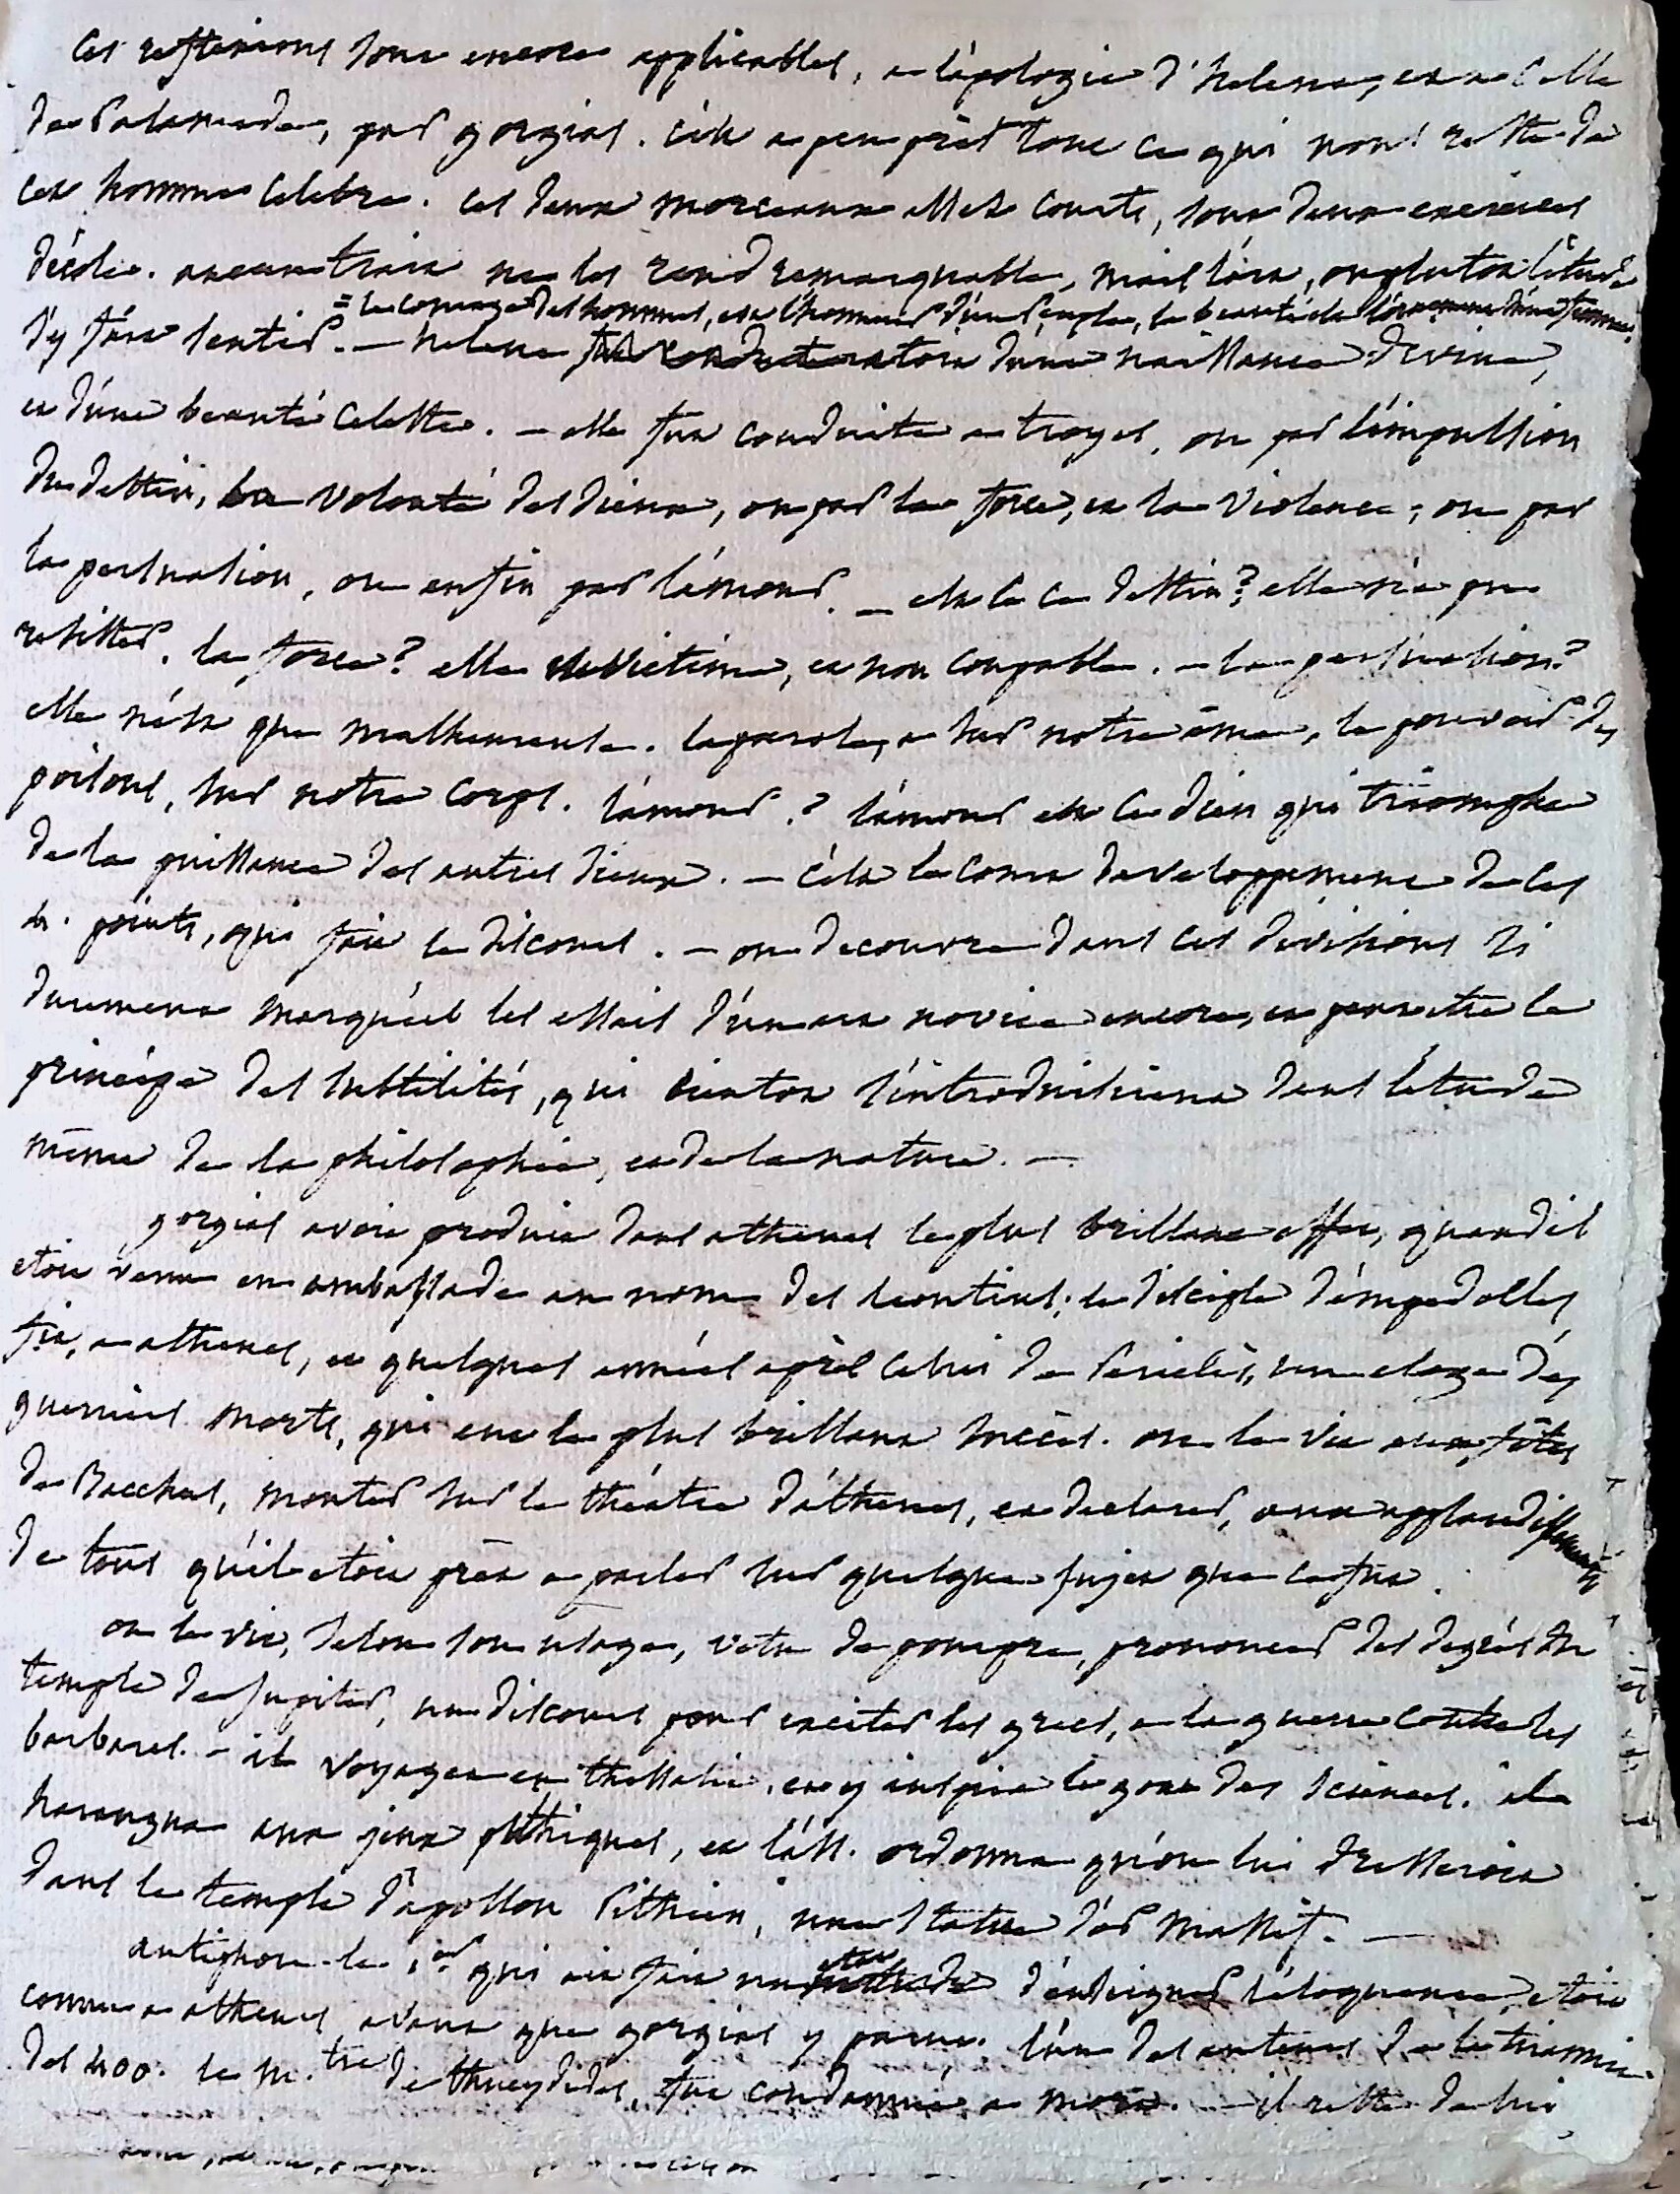 Ces reflexions sont encore applicables, a l'apologie d'helene, et a celle
de Palamede, par gorgias. c'est a peu près tout ce qui nous reste de
cet homme celebre. ces deux morceaux assez courts, sont deux exercices
d'école. aucun trait ne les rend remarquable, mais l'art, ou plutot l'etude
= le courage des hommes, est l'honneur d'un peuple, la beauté est l'ornement d'une femme.
s'y fait sentir. — helene d'une naissance divine,
et d'une beauté celeste. — elle fut conduite a troyes, ou par l'impulsion
du destin, la volonté des dieux, ou par la force, et la violence; ou par
la persuasion, ou enfin par l'amour. — est ce le destin? elle n'a pu
resister. la force? elle est victime, et non coupable. — la persuasion?
elle n'est que malheureuse. la parole, a sur notre âme, le pouvoir des
poisons, sur notre corps. l'amour? l'amour est le dieu qui triomphe
de la puissance des autres dieux. — c'est le court developpement de ces
4. points, qui fait le discours. — on decouvre dans ces divisions si
durement marquées les essais d'un art novice encore, et peut etre le
principe des subtilités, qui bientot s'introduisirent dans l'etude
même de la philosophie, et de la nature. —
gorgias avoit produit dans athenes le plus brillant effet, quand il
etoit venu en ambassade au nom des Leontins; le disciple d'empedocles,
fit, a athenes, et quelques années après celui de Periclès, un eloge des
guerriers morts, qui eut le plus brillant succès. on le vit aux fêtes
de Bacchus, monter sur le théatre d'athenes, et declarer, aux applaudissements
de tous qu'il etoit prêt a parler sur quelque sujet que ce fut.
on le vit, selon son usage, vetu de pourpre, prononcer des degrés du
temple de Jupiter, un discours pour exciter les grecs, a la guerre contre les
barbares. — il voyagea en thessalie, et y inspira le gout des sciences. il
harangua aux jeux pithiques, et l'ass. ordonna qu'on lui dresseroit
dans le temple d'apollon Pithien, une statue d'or massif. —
antiphon le 1er qui ait fait un etat d'enseigner l'éloquence, etoit
connu a athenes avant que gorgias y parut. l'un des auteurs de la tirannie
des 400. le m.tre de thucydides, fut condamné a mort. — il reste de lui